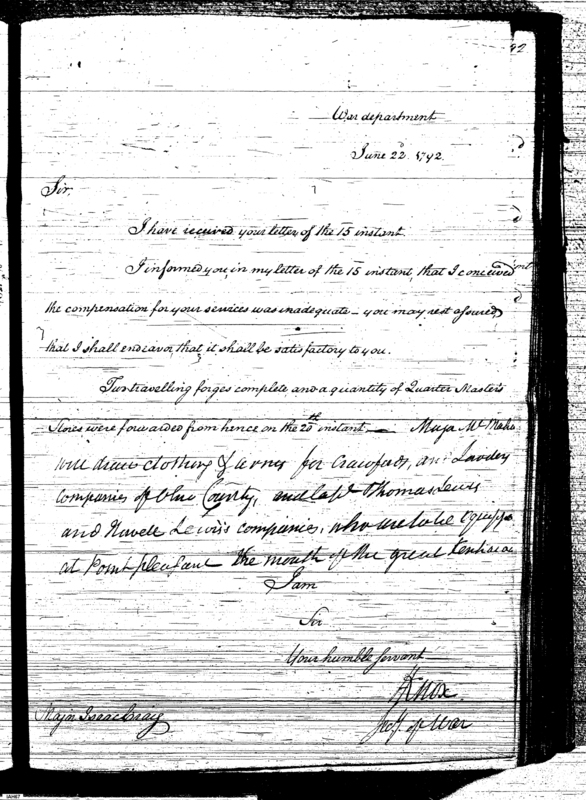 92
War department
June 22d. 1792.
Sir.
I have received your letter of the 15 instant.
I informed you, in my letter of the 15 instant, that I conceived
the compensation for your services was inadequate — you may rest assured,
that I shall endeavor that it shall be satisfactory to you.
Two travelling forges complete and a quantity of Quarter Masters
Stores were forwarded from hence on the 20th instant, — Major McMaho
will draw clothing & arms for Crawfords, and
companies of Ohio County, and Capt Thomas Lewis
and Lewis's companies, who are to be Equipp
at Point pleasant the mouth of the great
I am
Sir
Your humble Servant
H Knox
Secy. of War
Major Isaac Craig